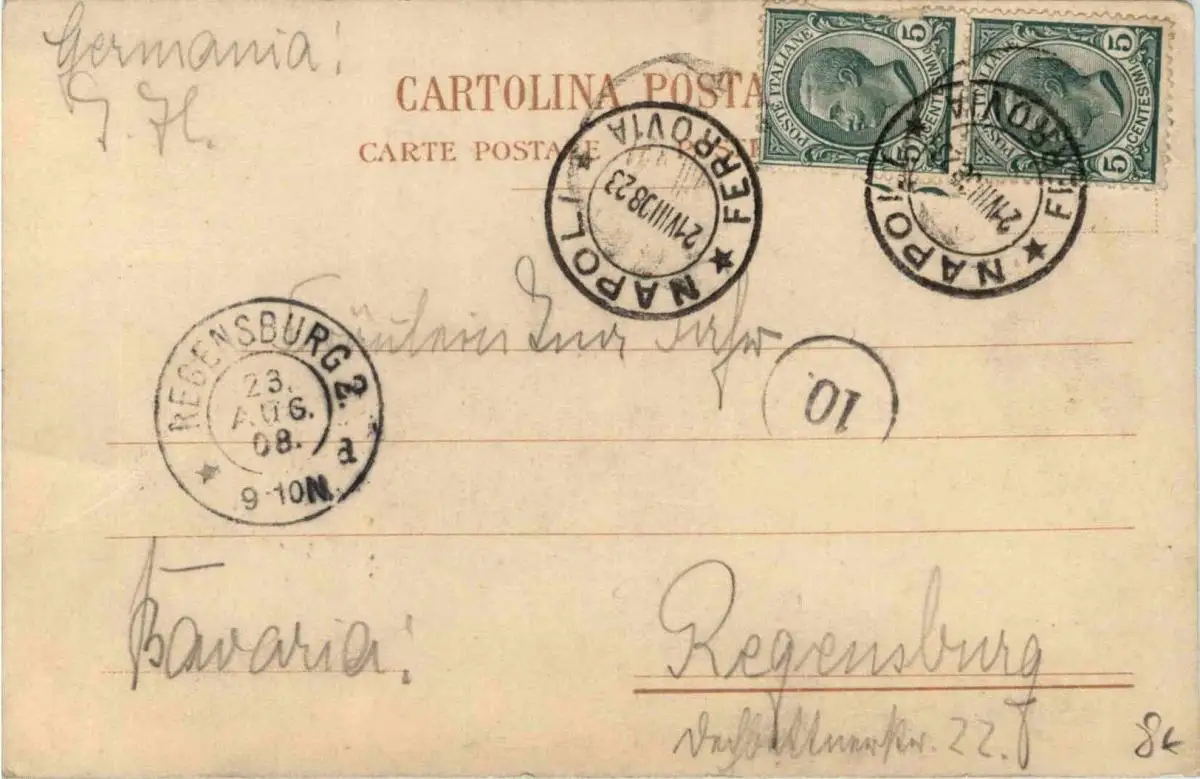 Germania!
CARTOLINA POSTA
CARTE POSTALE
POSTE ITALIANE
5
CENTESIMI
POSTE ITALIANE
5
CENTESIMI 5
NAPOLI ★ FERROVIA ★
21VIII08 23
NAPOLI ★ FERROVIA ★
21VIII08
Fräulein
10.
REGENSBURG 2.
23.
AUG.
08.
a
9-10N.
Bavaria!
Regensburg
22.
8€